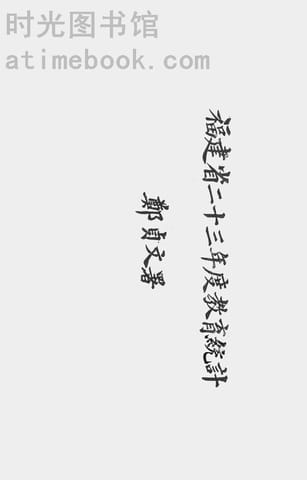 时光图书馆
atimebook.com
福建省二十三年度教育統計
鄭貞文署